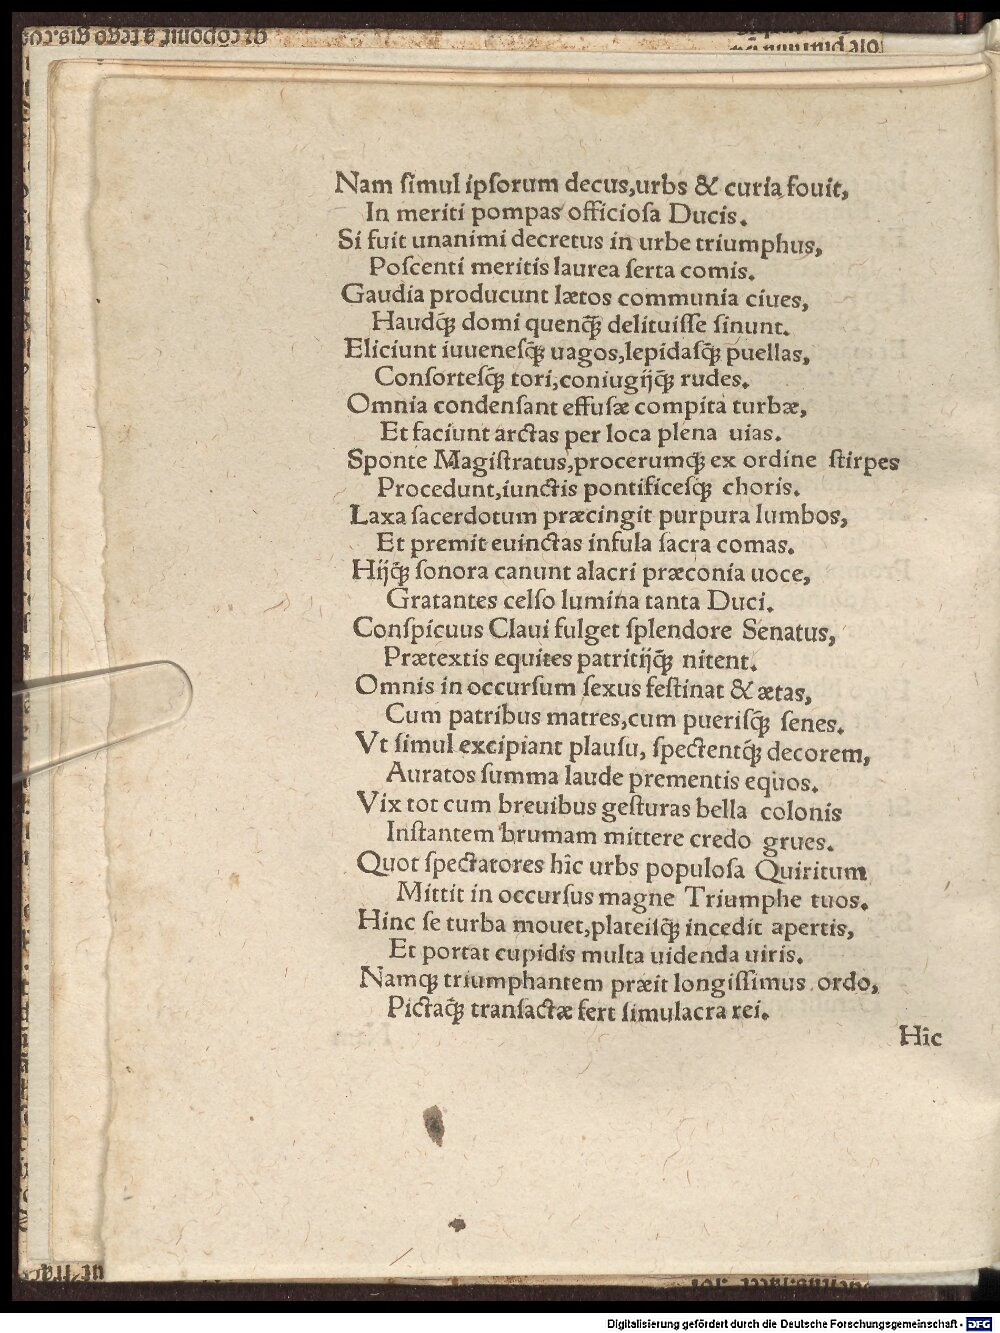 Nam ſimul ipſorum decus,urbs & curia fouit,
In meriti pompas officioſa Ducis.
Si fuit unanimi decretus in urbe triumphus,
Poſcenti meritis laurea ſerta comis.
Gaudia producunt lætos communia ciues,
Haudq̃ꝫ domi quenq̃ꝫ delituiſſe ſinunt.
Eliciunt iuueneſq̃ꝫ uagos,lepidaſq̃ꝫ puellas,
Conſorteſq̃ꝫ tori,coniugijq̃ꝫ rudes.
Omnia condenſant effuſæ compita turbæ,
Et faciunt arctas per loca plena uias.
Sponte Magiſtratus,procerumqꝫ ex ordine ſtirpes
Procedunt,iunctis pontificeſqꝫ choris.
Laxa ſacerdotum præcingit purpura lumbos,
Et premit euinctas infula ſacra comas.
Hijq̃ꝫ ſonora canunt alacri præconia uoce,
Gratantes celſo lumina tanta Duci.
Conſpicuus Claui fulget ſplendore Senatus,
Prætextis equites patritijq̃ꝫ nitent.
Omnis in occurſum ſexus feſtinat & ætas,
Cum patribus matres,cum pueriſq̃ꝫ ſenes.
Vt ſimul excipiant plauſu, ſpectentq̃ꝫ decorem,
Auratos ſumma laude prementis equos.
Vix tot cum breuibus geſturas bella colonis
Inſtantem brumam mittere credo grues.
Quot ſpectatores hîc urbs populoſa Quiritum
Mittit in occurſus magne Triumphe tuos.
Hinc ſe turba mouet,plateiſq̃ꝫ incedit apertis,
Et portat cupidis multa uidenda uiris.
Namqꝫ triumphantem præit longiſſimus ordo,
Pictaq̃ꝫ tranſactæ fert ſimulacra rei.
Hîc
Digitalisierung gefördert durch die Deutsche Forschungsgemeinschaft - DFG